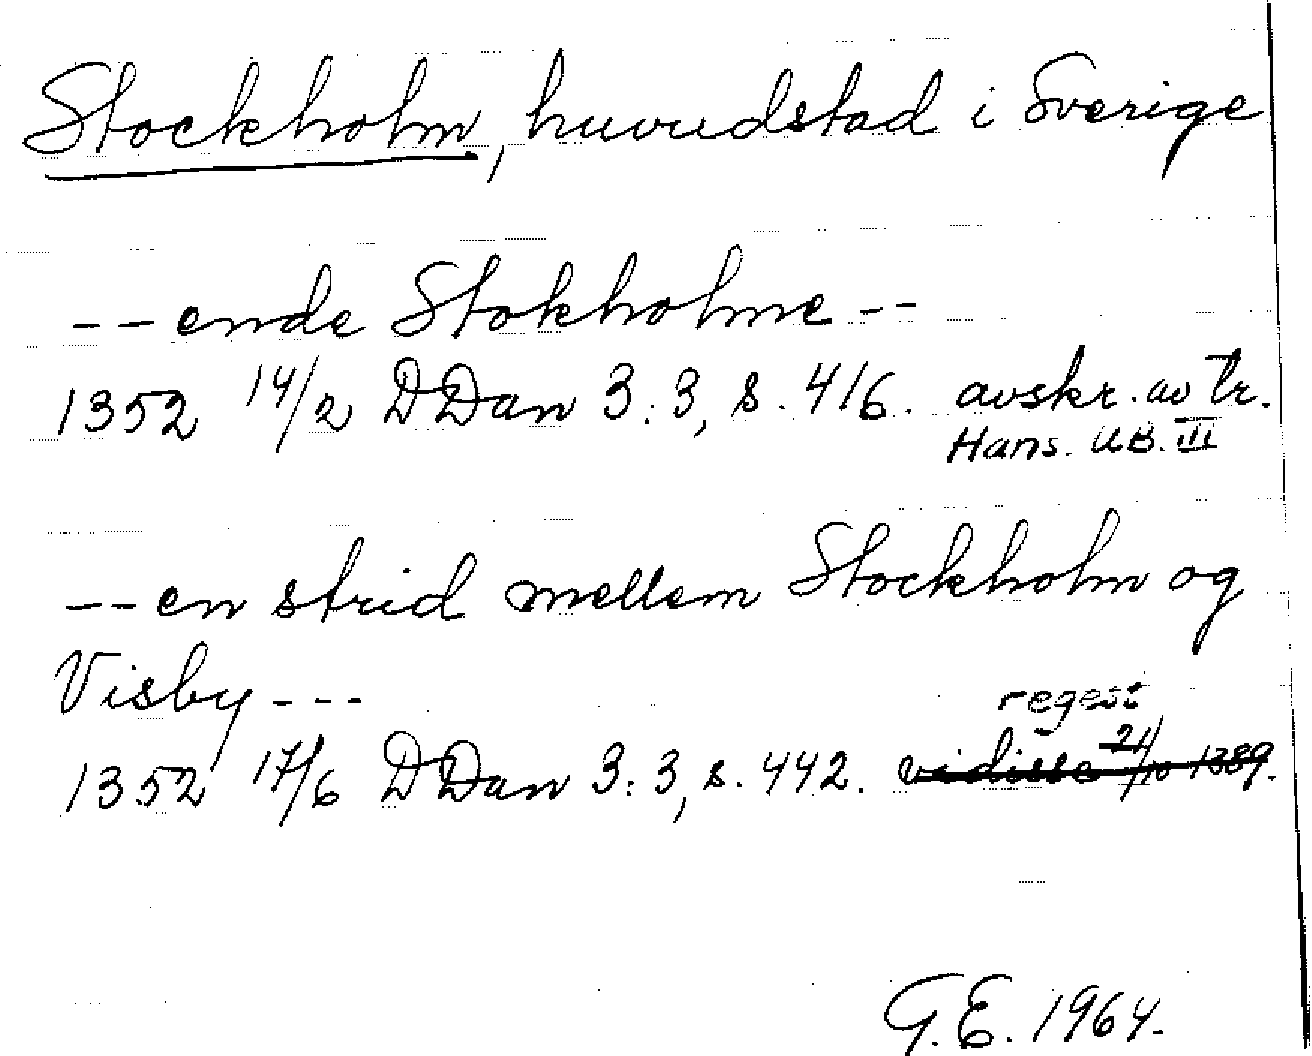 Stockholm, huvudstad i Sverige
-- ende Stokholme --
1352 14/2 DDan 3:3, s. 416. avskr. av tr.
Hans. UB. III
-- en strid mellem Stockholm og
Visby ---
regest
1352 17/6 DDan 3:3, s. 442. vidisse 21/10 1389.
G.E. 1964.